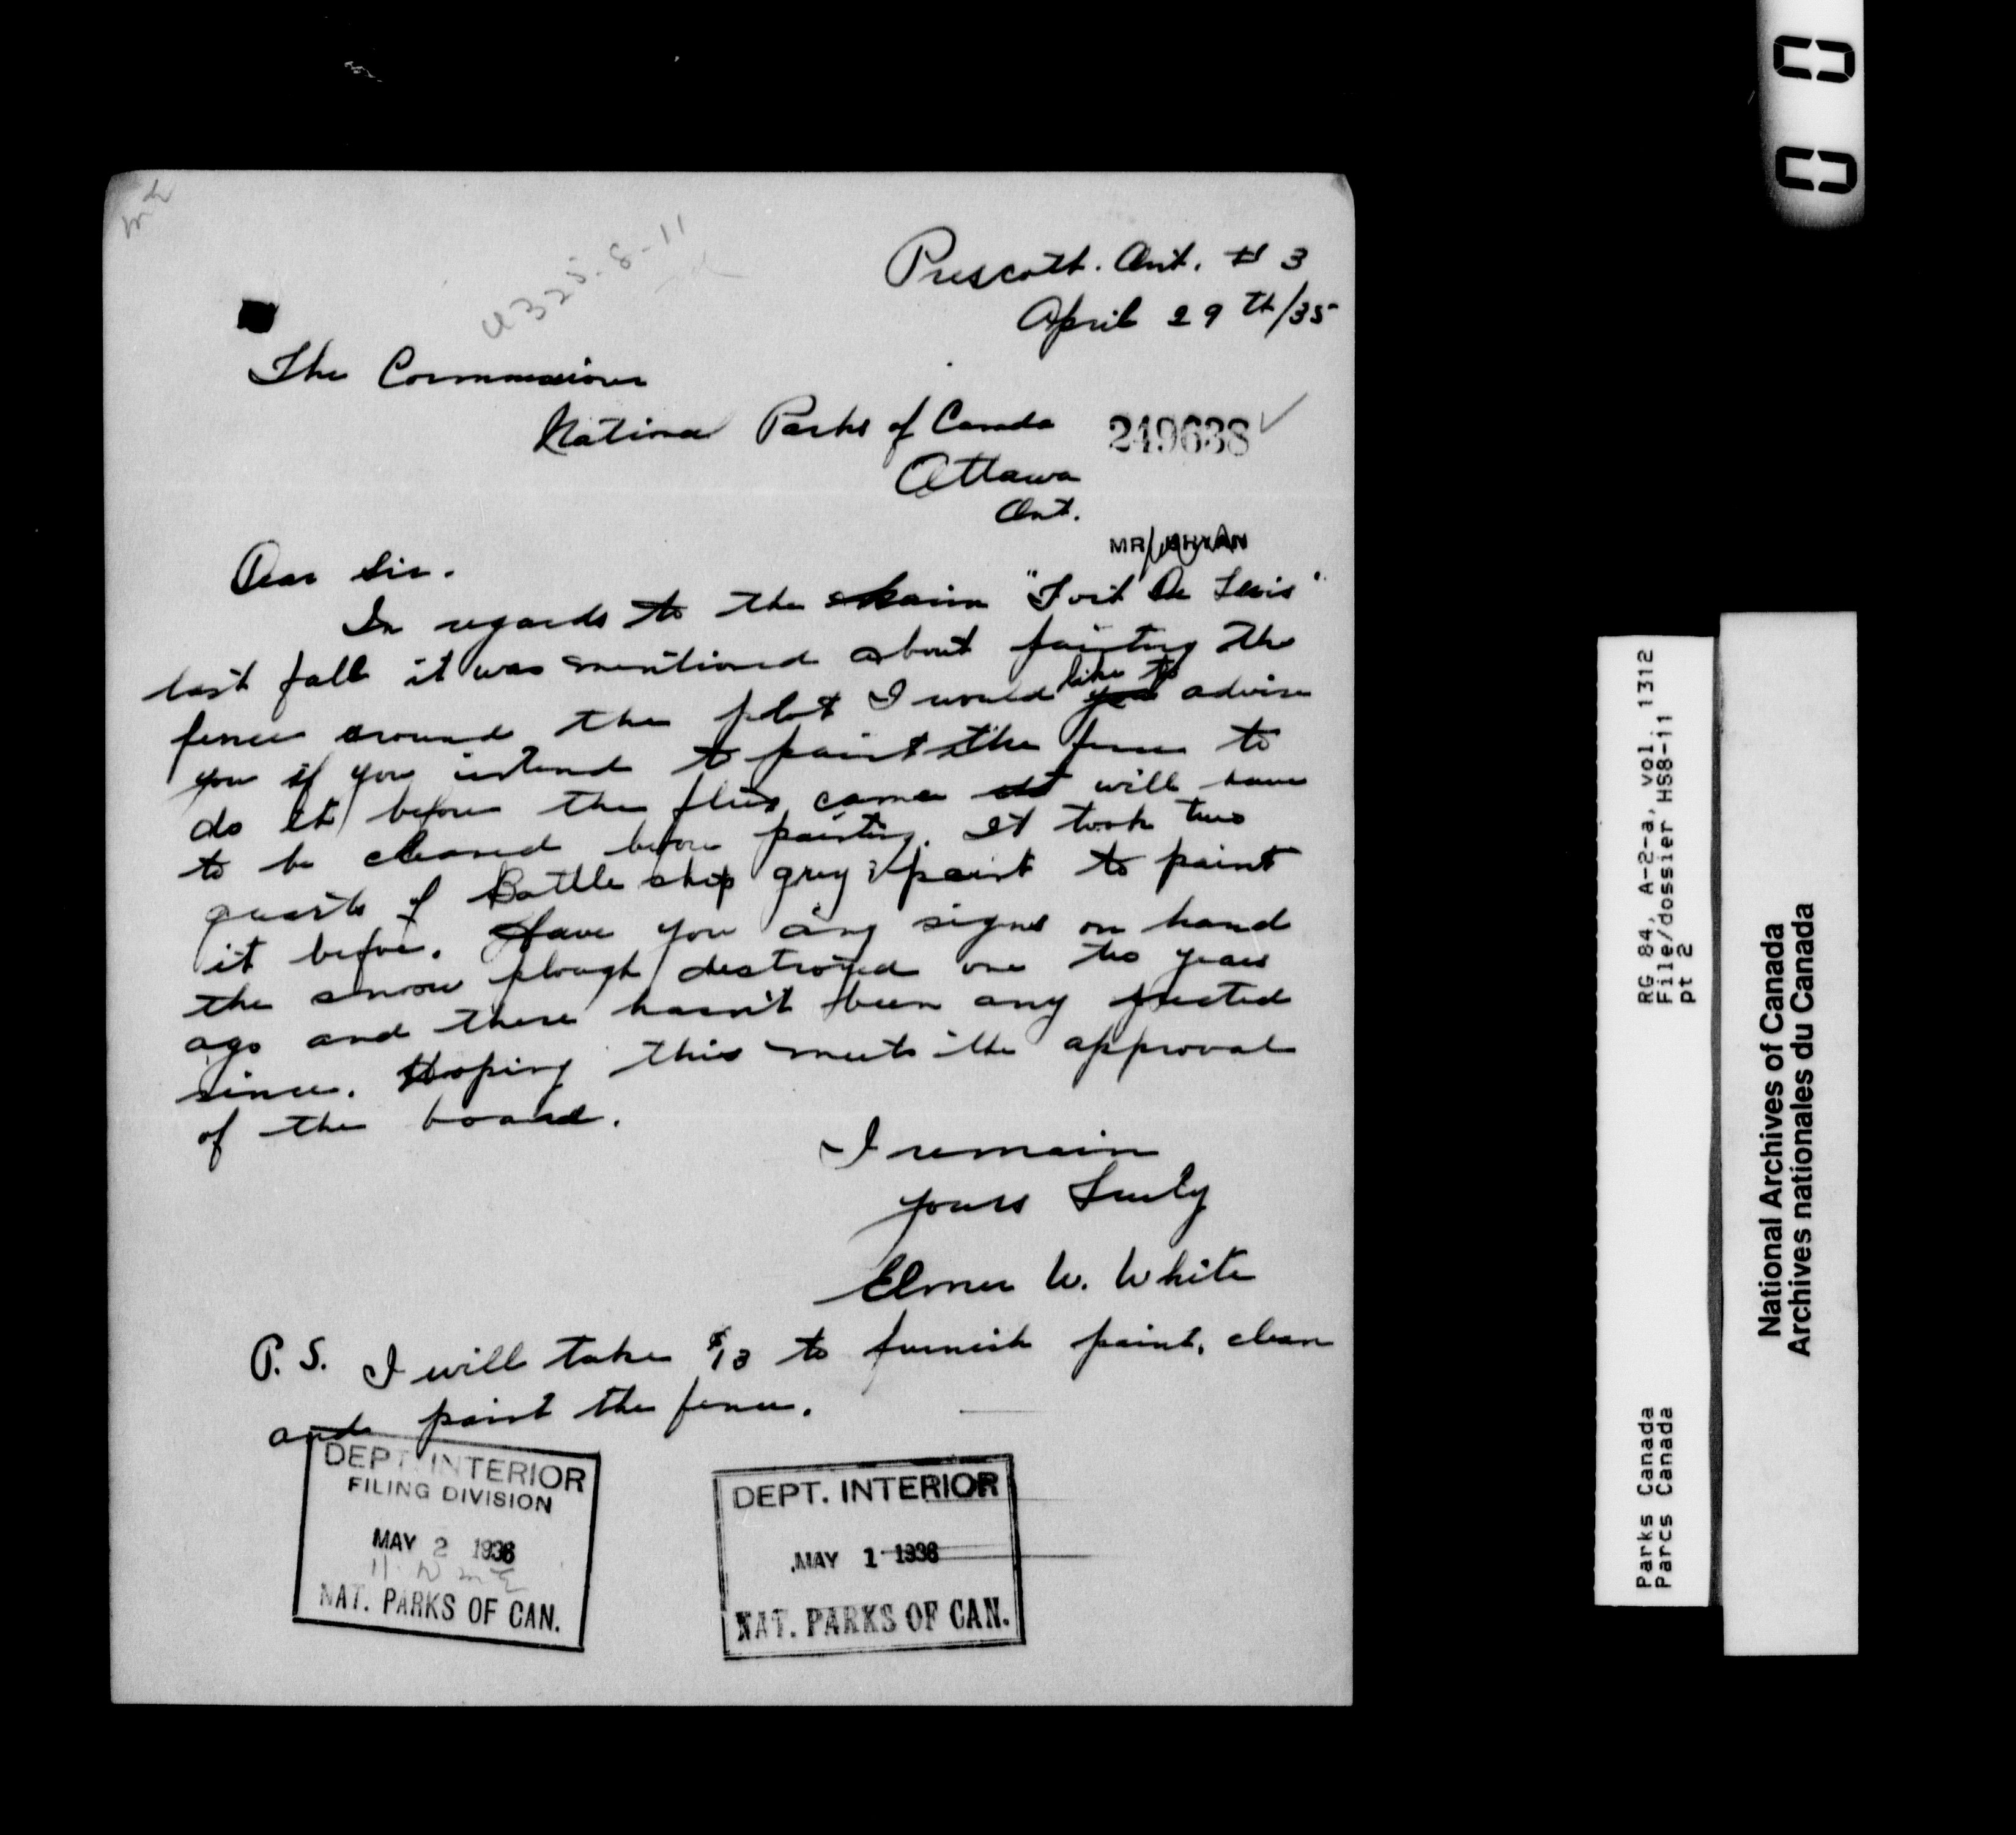 U325-8-11
Prescott. Ont. # 3
April 29th/35
The Commissioner
National Parks of Canada
249638
Ottawa
Ont.
MR
Dear Sir.
In regards to the "Fort De Levis"
last fall it was mentioned about painting the
fence around the plot I would like to advise
you if you intend to paint the fence to
do it before the flies come it will have
to be cleaned before painting. It took two
quarts of Battle ship grey paint to paint
it before. Have you any signs on hand
the snow plough destroyed one two years
ago and there hasn't been any erected
since. Hoping this meets the approval
of the board.
I remain
yours Truly
Elmer W. White
P. S. I will take $13 to furnish paint, clean
and paint the fence.
DEPT. INTERIOR
FILING DIVISION
MAY 2 1936
NAT. PARKS OF CAN.
DEPT. INTERIOR
MAY 1 1936
NAT. PARKS OF CAN.
RG 84, A-2-a, vol. 1312
File/dossier HS8-11
pt 2
Parks Canada
Parcs Canada
National Archives of Canada
Archives nationales du Canada